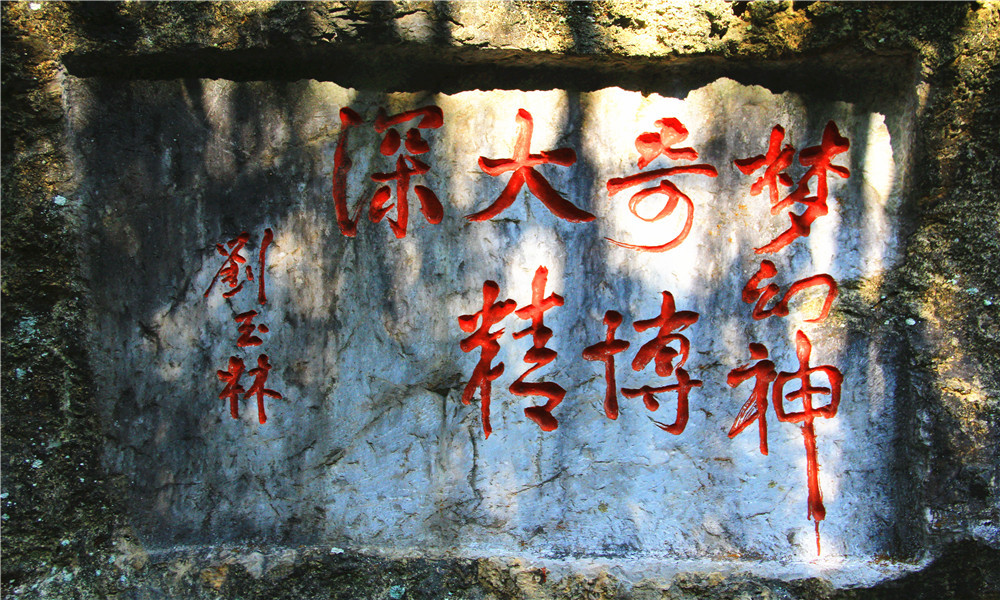 梦幻神
奇博
大精
深
劉玉林